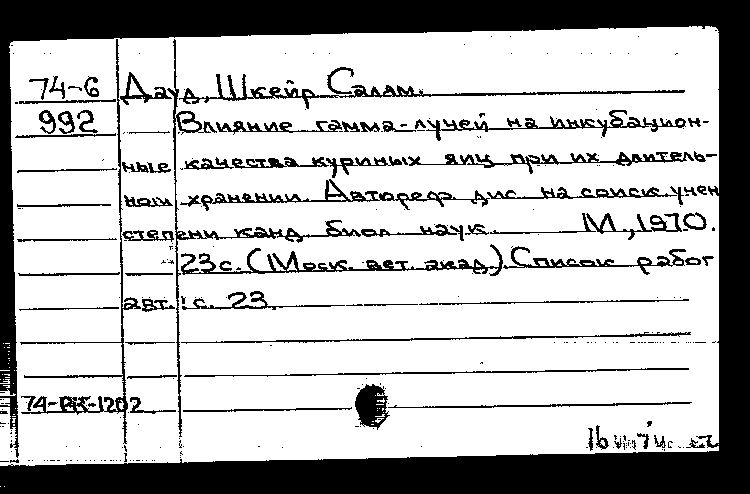 74-6 Дауд, Шкейр Салям.
992 Влияние гамма-лучей на инкубацион-
ные качества куриных яиц при их длитель-
ном хранении. Автореф. дис. на соиск. учен
степени канд. биол. наук. М., 1970.
23с. (Моск. вет. акад.). Список работ
авт.: с. 23.
74-1202